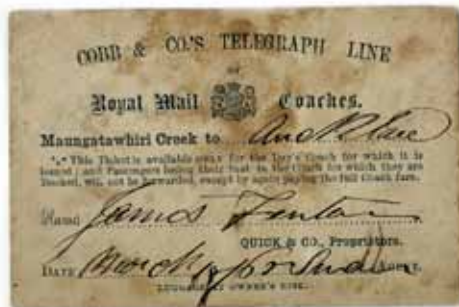 COBB & CO.'S TELEGRAPH LINE
OF
Royal Mail Coaches.
Maungatawhiri Creek to Auckland
*⁎* This Ticket is available ONLY for the Day's Coach for which it is
issued; and Passengers losing their Seat in the Coach for which they are
Booked, will not be forwarded, except by again paying the full Coach fare.
Name James
QUICK & CO., Proprietors.
DATE March AGENT.
LUGGAGE AT OWNER'S RISK.